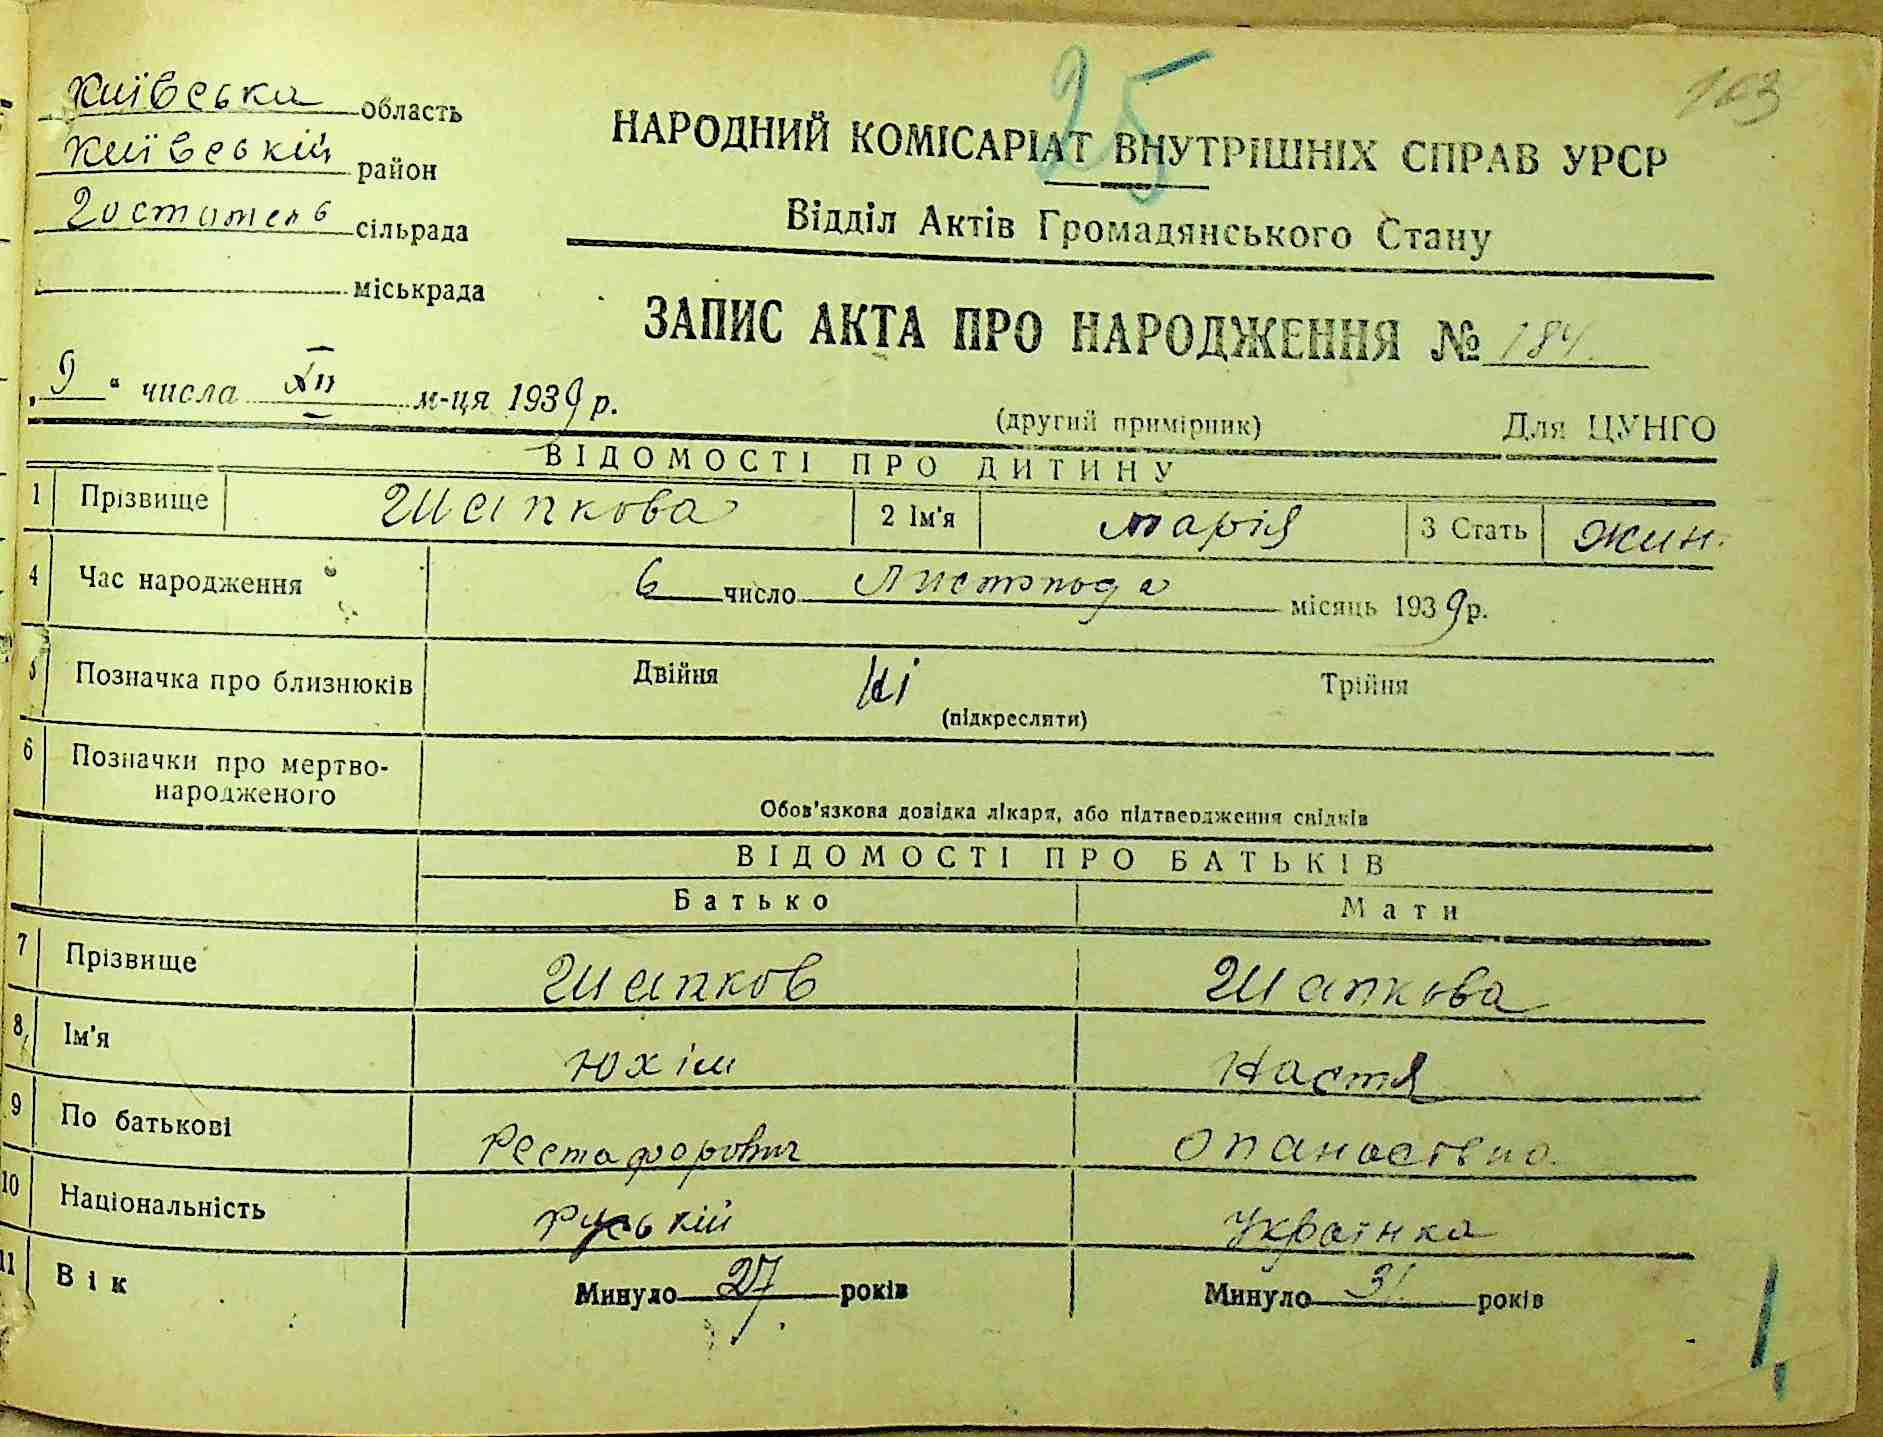 25
163
Київська область
Київській район
Гостомель сільрада
міськрада
НАРОДНИЙ КОМІСАРІАТ ВНУТРІШНІХ СПРАВ УРСР
Відділ Актів Громадянського Стану
ЗАПИС АКТА ПРО НАРОДЖЕННЯ № 184.
„9" числа XII м-ця 1939 р.
(другий примірник) Для ЦУНГО
ВІДОМОСТІ ПРО ДИТИНУ
1 Прізвище Шапкова 2 Ім'я Марія 3 Стать жин.
4 Час народження 6 число Листопада місяць 1939 р.
5 Позначка про близнюків Двійня Ні Трійня
(підкресляти)
6 Позначки про мертво-
народженого
Обов'язкова довідка лікаря, або підтвердження свідків
ВІДОМОСТІ ПРО БАТЬКІВ
Батько Мати
7 Прізвище Шапков Шапкова
8 Ім'я Юхім Настя
9 По батькові Рестафорович Опанасівна
10 Національність Руській Українка
11 Вік Минуло 27 років Минуло 31 років
1.